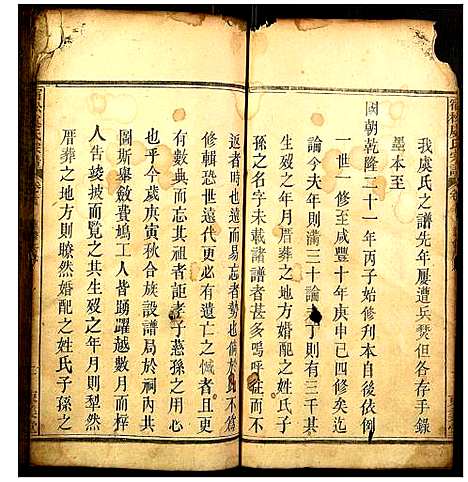 我虞氏之譜先年屢遭兵燹但各存手錄
墨本至
國朝乾隆二十一年丙子始修刋本自後依倒
一世一修至咸豐十年庚申已四修矣迄
論今夫年則滿三十論丁則有三千其
孫之名字未載諸譜者甚多嗚呼往而不
返者時也遠而易忘者勢也倘於此不修
修輯恐世遠代更必有遺亡之憾者且更
有數典而忘其祖者詎孝子慈孫之用心
也乎今歲庚寅秋合族設譜局於祠內共
圖斯舉斂費鳩工人皆踴躍越數月而梓
人告竣披而覧之其生歿之年月則犁然
厝葬之地方則瞭然婚配之姓氏子孫之